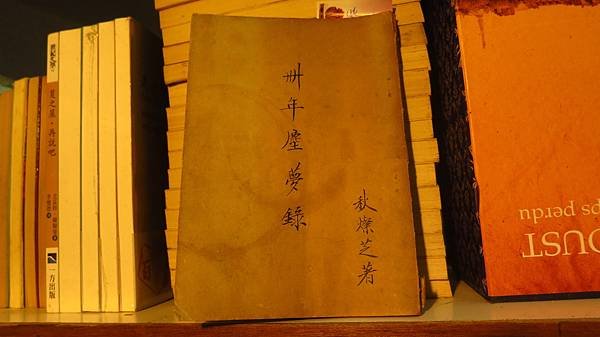 卅年塵夢錄
秋燦芝著
夏之屋・再說吧
一方出版
OUST
ps perdu